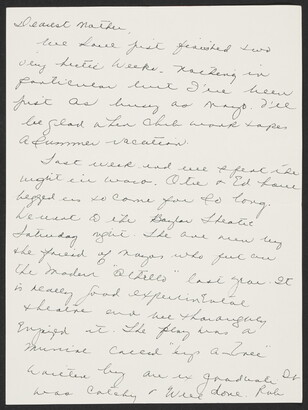 Dearest Mother,
We have just finished two
very hectic weeks. Nothing in
particular but I've been
just as busy as Mayo. I'll
be glad when Club work takes
a summer vacation.
Last week end we spent the
night in Waco. Otie & Ed have
begged us to come for so long.
We went to the Baylor Theatre
Saturday night. The are run by
the friend of Mayos who put on
the Modern "Othello" last year. It
is really good experimental
theatre and we thoroughly
enjoyed it. The play was a
Musical called
written by an ex graduate. It
was catchy & well done. Rob